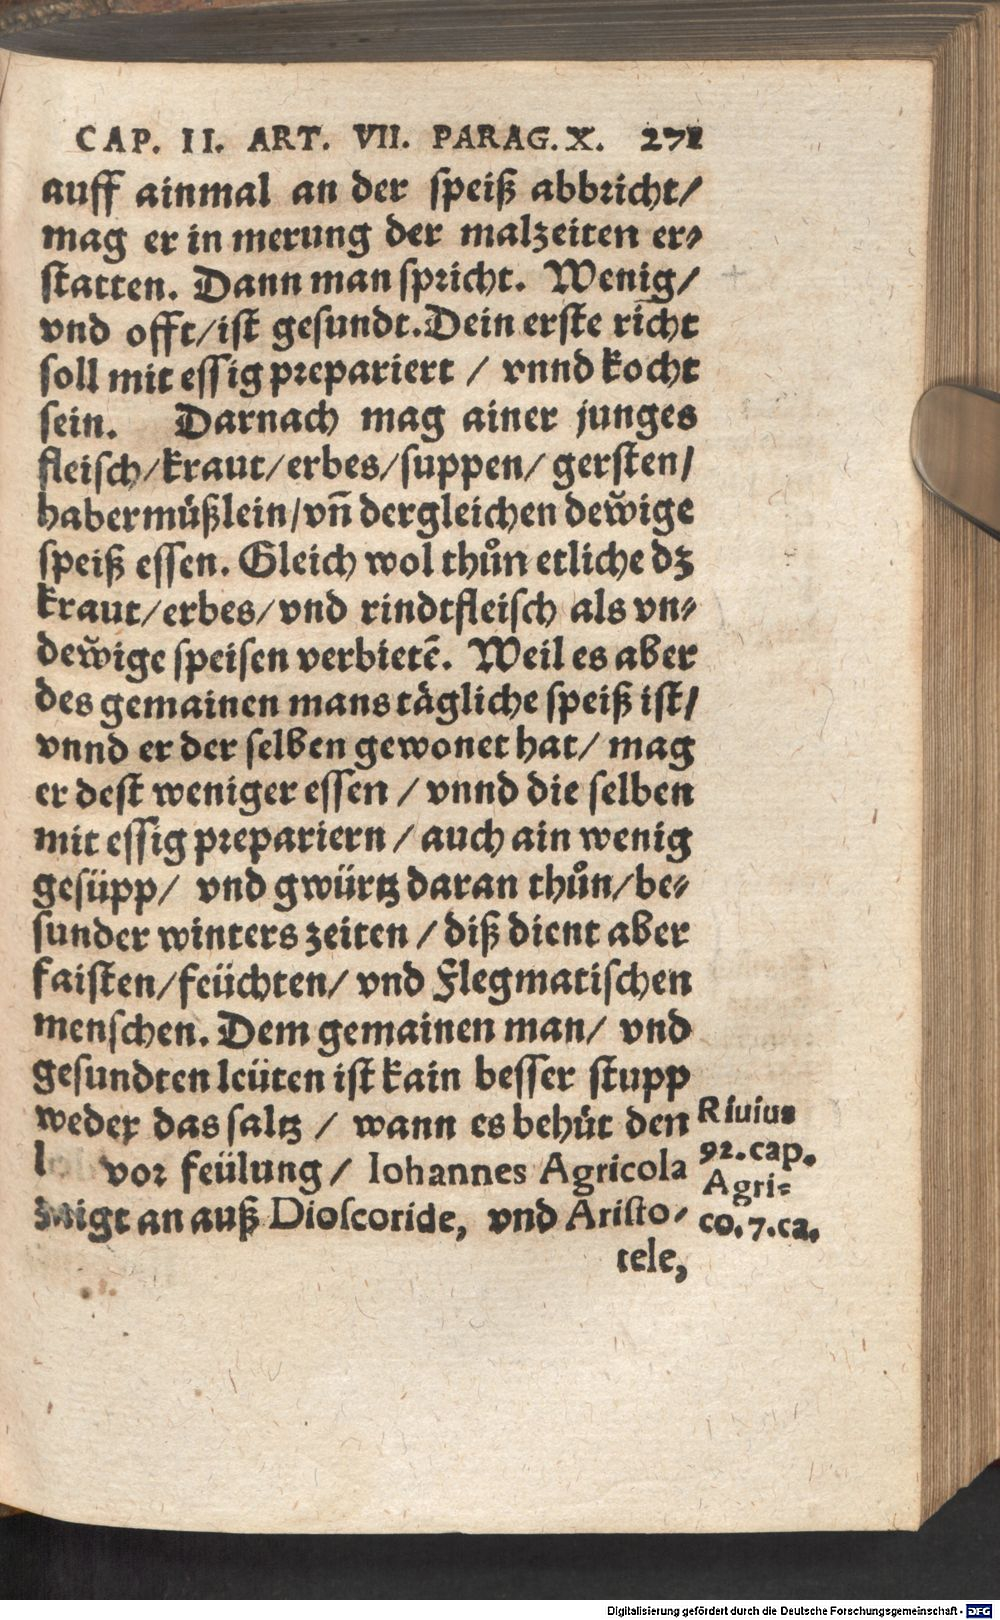 CAP. II. ART. VII. PARAG. X. 271
auff ainmal an der speiß abbricht/
mag er in merung der malzeiten er⸗
statten. Dann man spricht. Wenig/
vnd offt/ist gesundt.Dein erste richt
soll mit essig prepariert / vnnd kocht
sein. Darnach mag ainer junges
fleisch/kraut/erbes/suppen/ gersten/
habermüßlein/vn̄ dergleichen dew̆ige
speiß essen. Gleich wol thůn etliche dz
kraut/erbes/vnd rindtfleisch als vn⸗
dew̆ige speisen verbietē. Weil es aber
des gemainen mans tägliche speiß ist/
vnnd er der selben gewonet hat/ mag
er dest weniger essen / vnnd die selben
mit essig prepariern / auch ain wenig
gesüpp/ vnd gwürtz daran thůn/be⸗
sunder winters zeiten / diß dient aber
faisten/feüchten/ vnd Flegmatischen
menschen. Dem gemainen man/ vnd
gesundten leüten ist kain besser stupp
weder das saltz / wann es behüt den
l vor feülung/ Iohannes Agricola
zaigt an auß Dioscoride, vnd Aristo⸗
tele,
Riuius
92.cap.
Agri⸗
co.7.ca.
Digitalisierung gefördert durch die Deutsche Forschungsgemeinschaft - DFG